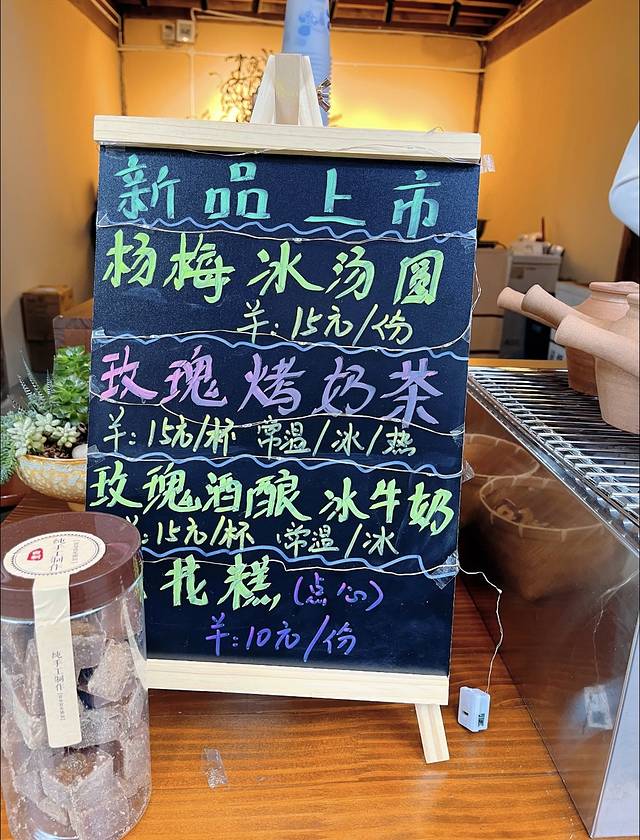 新品上市
杨梅冰汤圆
羊:15元/份
玫瑰烤奶茶
羊:15元/杯 常温/冰/热
玫瑰酒酿冰牛奶
羊:15元/杯 常温/冰
花糕,(点心)
羊:10元/份
纯手工制作
纯手工制作